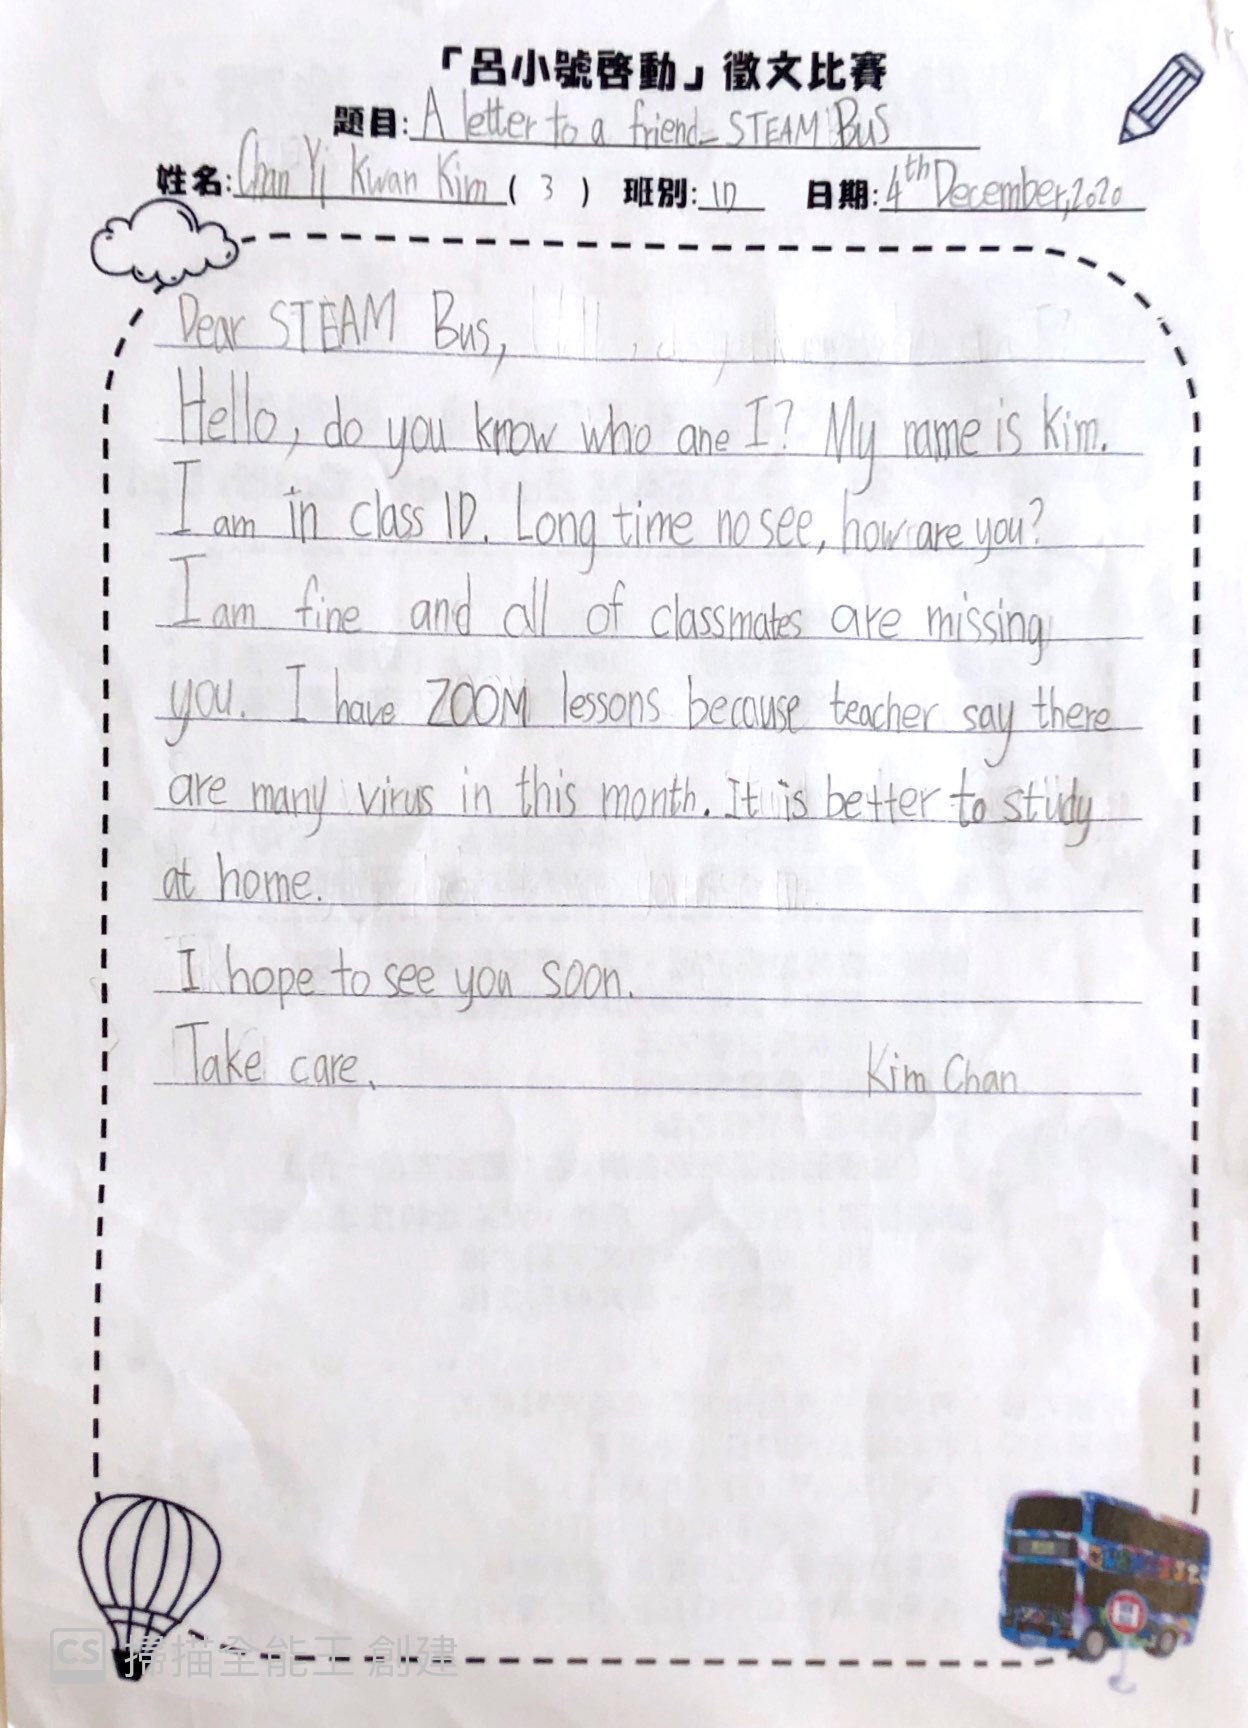 「呂小號啓動」徵文比賽
題目: A letter to a friend - STEAM Bus
姓名: Chan Yi Kwan Kim ( 3 ) 班別: 1D 日期: 4th December, 2020
Dear STEAM Bus,
Hello, do you know who are I? My name is Kim.
I am in class 1D. Long time no see, how are you?
I am fine and all of classmates are missing
you. I have ZOOM lessons because teacher say there
are many virus in this month. It is better to study
at home.
I hope to see you soon.
Take care. Kim Chan
CS 掃描全能王 創建